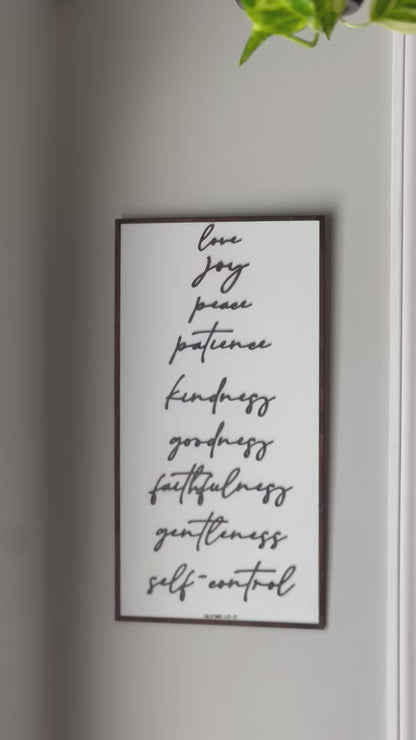 love
joy
peace
patience
kindness
goodness
faithfulness
gentleness
self-control